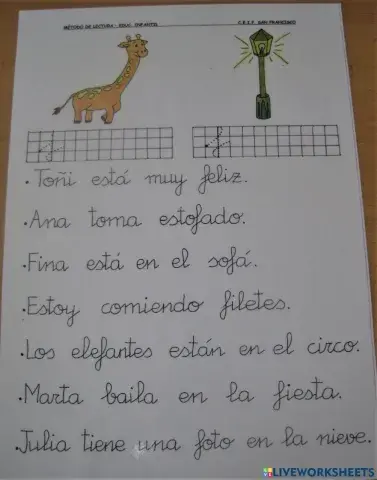 MÉTODO DE LECTURA - EDUC. INFANTIL C.E.I.P. SAN FRANCISCO
j f
· Toñi está muy feliz.
· Ana toma estofado.
· Fina está en el sofá.
· Estoy comiendo filetes.
· Los elefantes están en el circo.
· Marta baila en la fiesta.
· Julia tiene una foto en la nieve.
LIVEWORKSHEETS